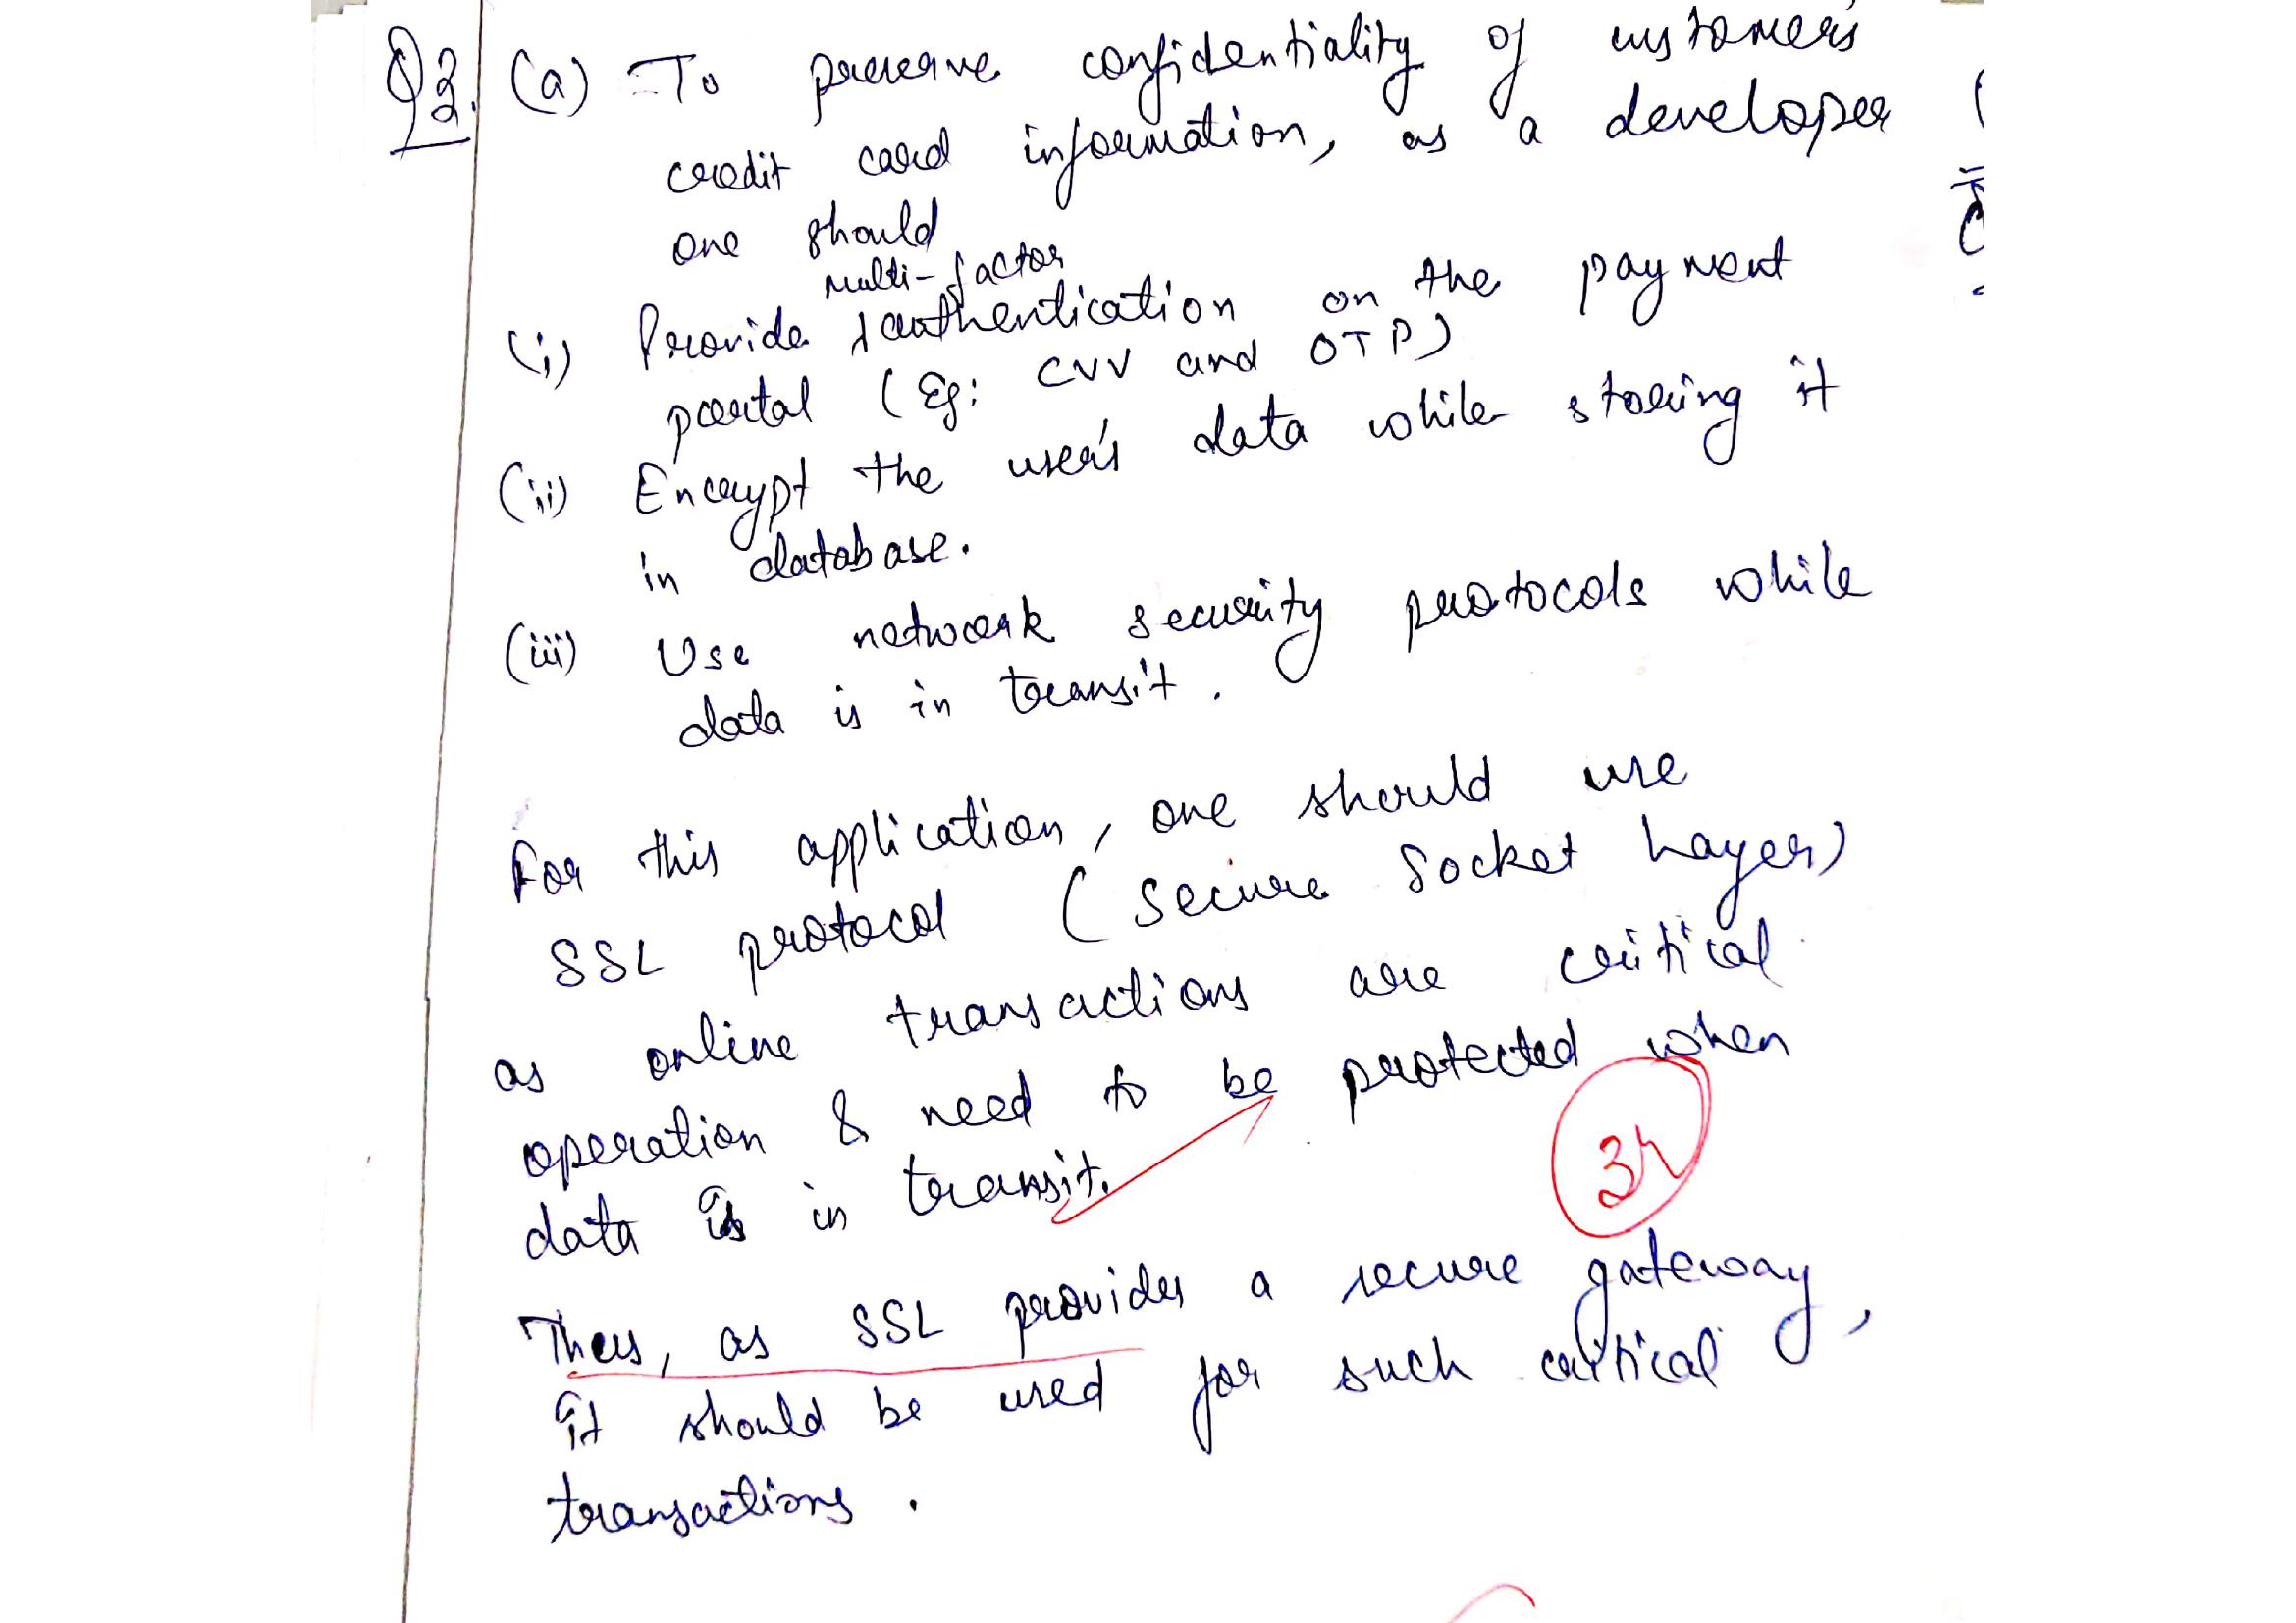 Q2. (a) To preserve confidentiality of customer's
credit card information, as a developer
one should
multi-factor
(i) Provide authentication on the payment
portal (Eg: CVV and OTP)
(ii) Encrypt the user's data while storing it
in database.
(iii) Use network security protocols while
data is in transit.
For this application, one should use
SSL protocol (Secure Socket Layer)
as online transactions are critical
operation & need to be protected when
data is in transit.
Thus, as SSL provides a secure gateway,
it should be used for such critical
transactions.